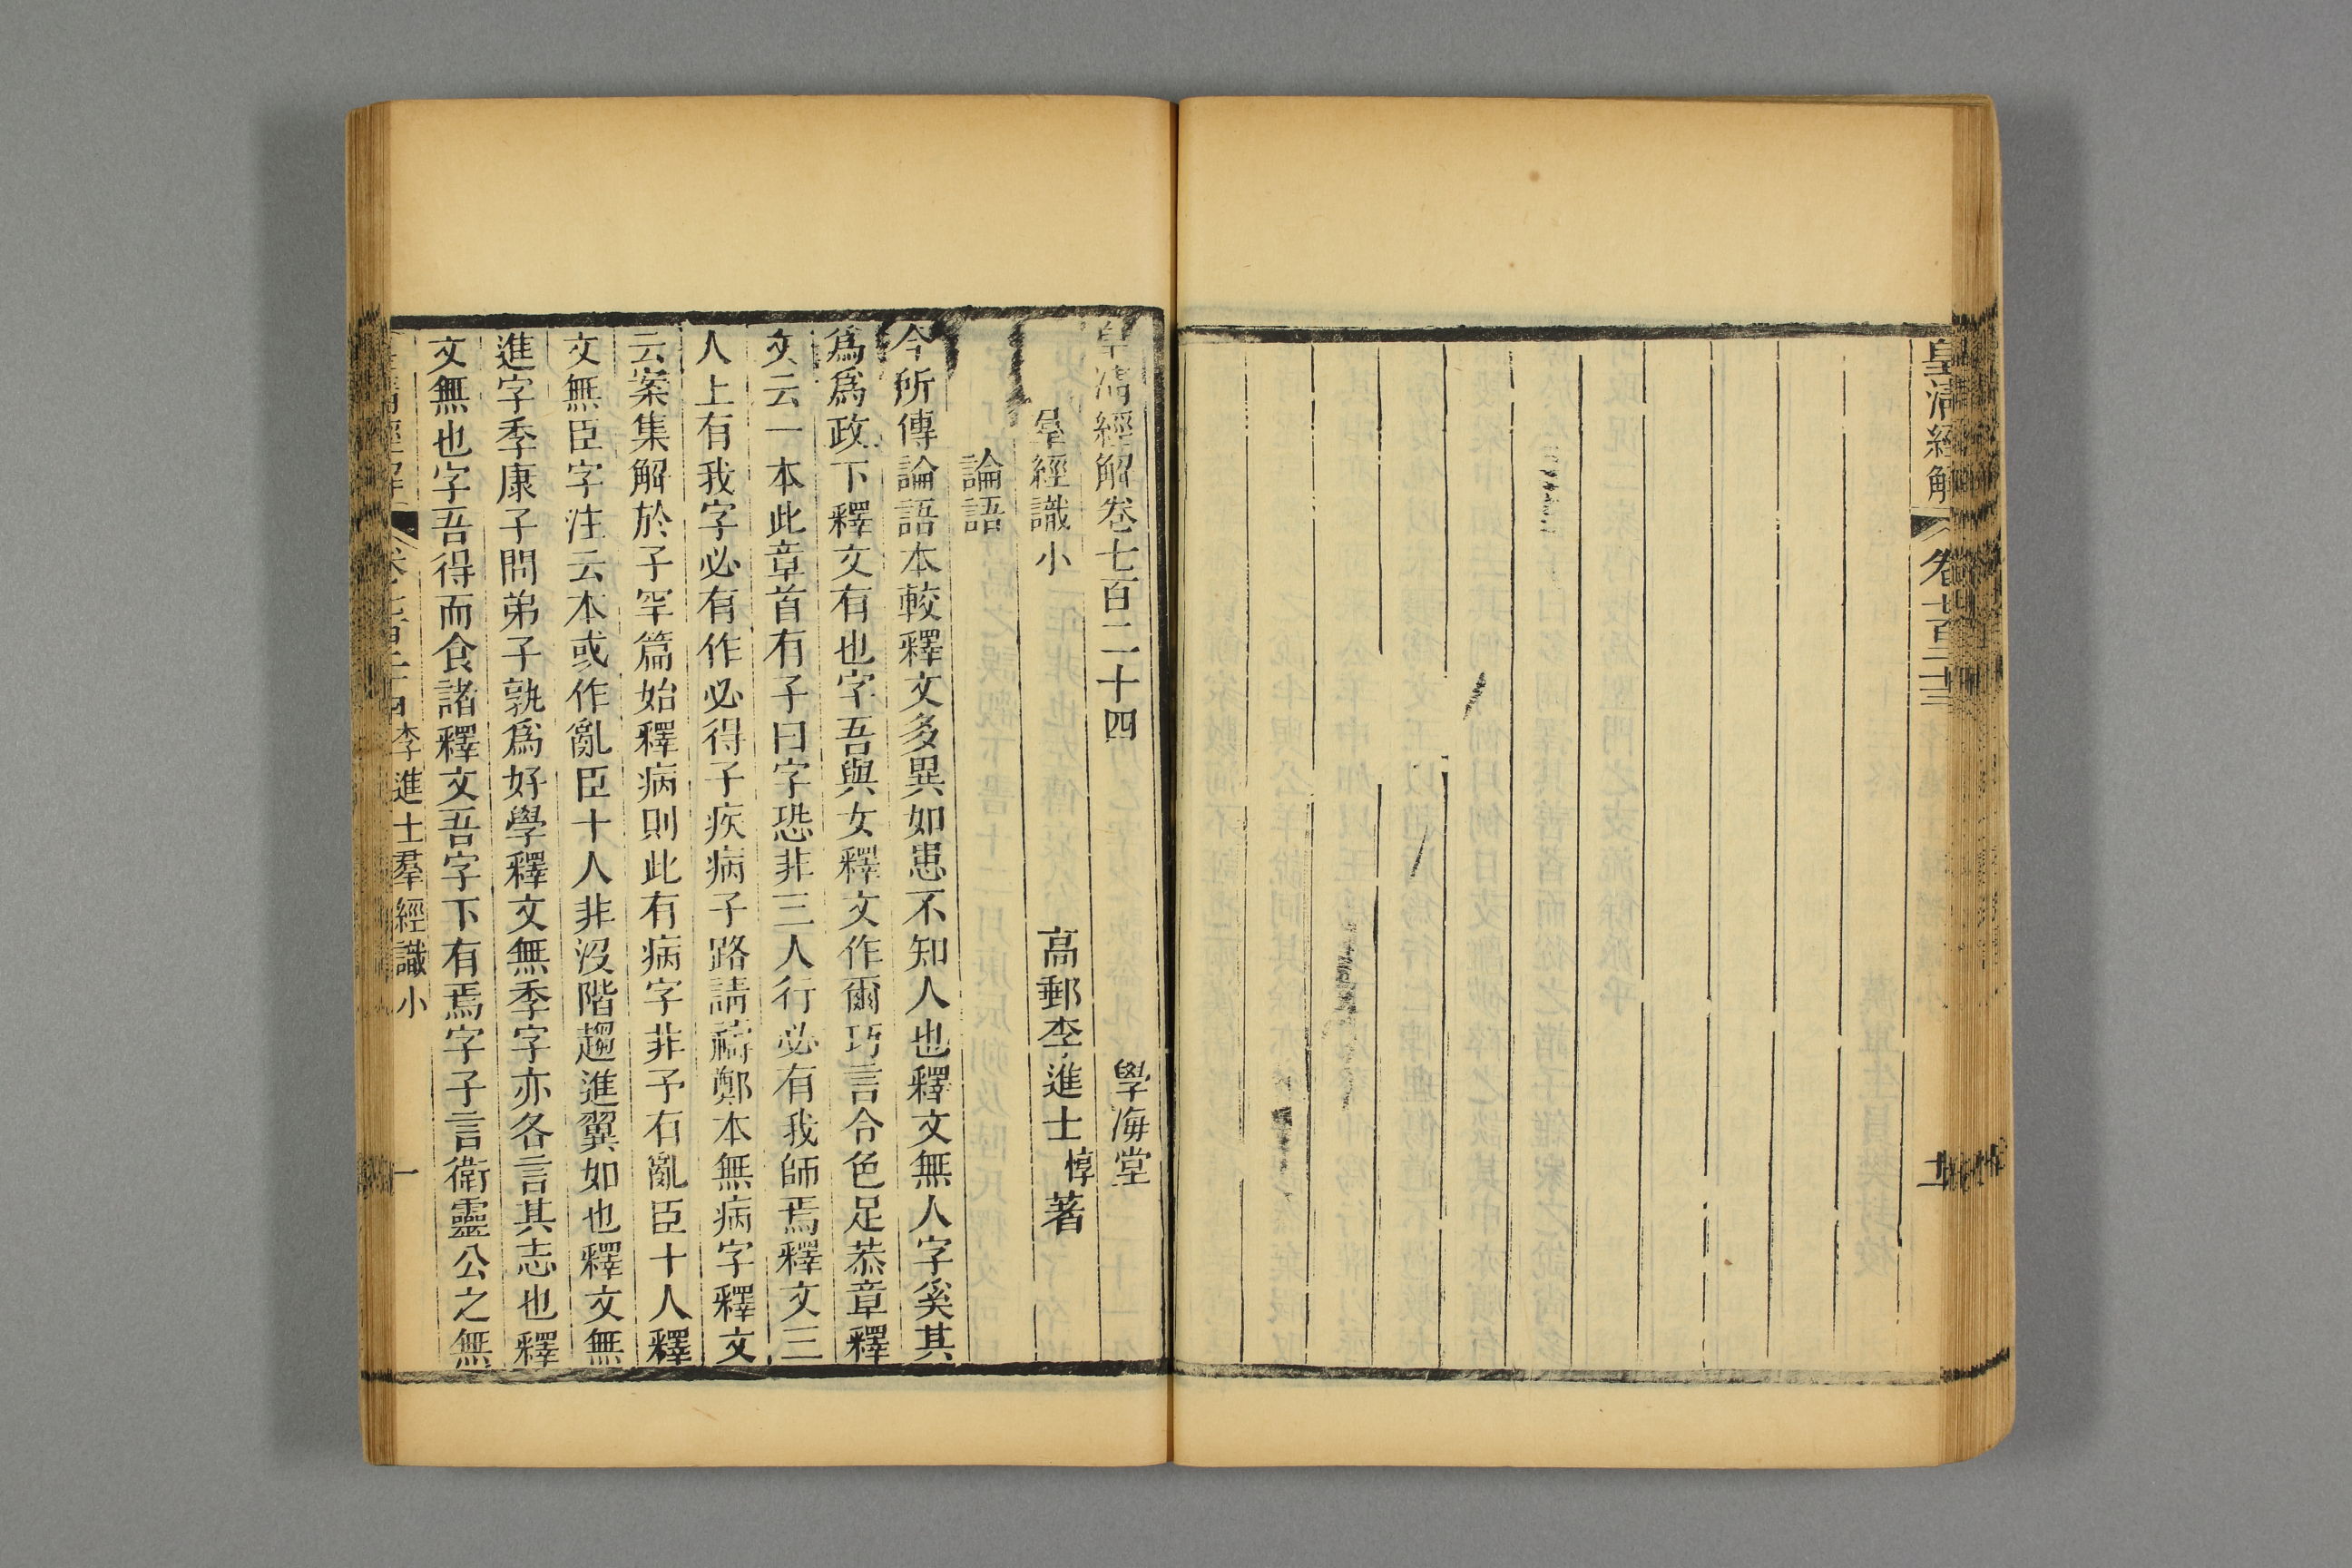 皇清經解
皇清經解卷七百二十四
學海堂
羣經識小
高郵李進士惇著
論語
今所傳論語本較釋文多異如患不知人也釋文無人字奚其
爲爲政下釋文有也字吾與女釋文作爾巧言令色足恭章釋
文云一本此章首有子曰字恐非三人行必有我師焉釋文三
人上有我字必有作必得子疾病子路請禱鄭本無病字釋文
云案集解於子罕篇始釋病則此有病字非予有亂臣十人釋
文無臣字注云本或作亂臣十人非沒階趨進翼如也釋文無
進字季康子問弟子孰爲好學釋文無季字亦各言其志也釋
文無也字吾得而食諸釋文吾字下有焉字子言衛靈公之無
李進士羣經識小
一